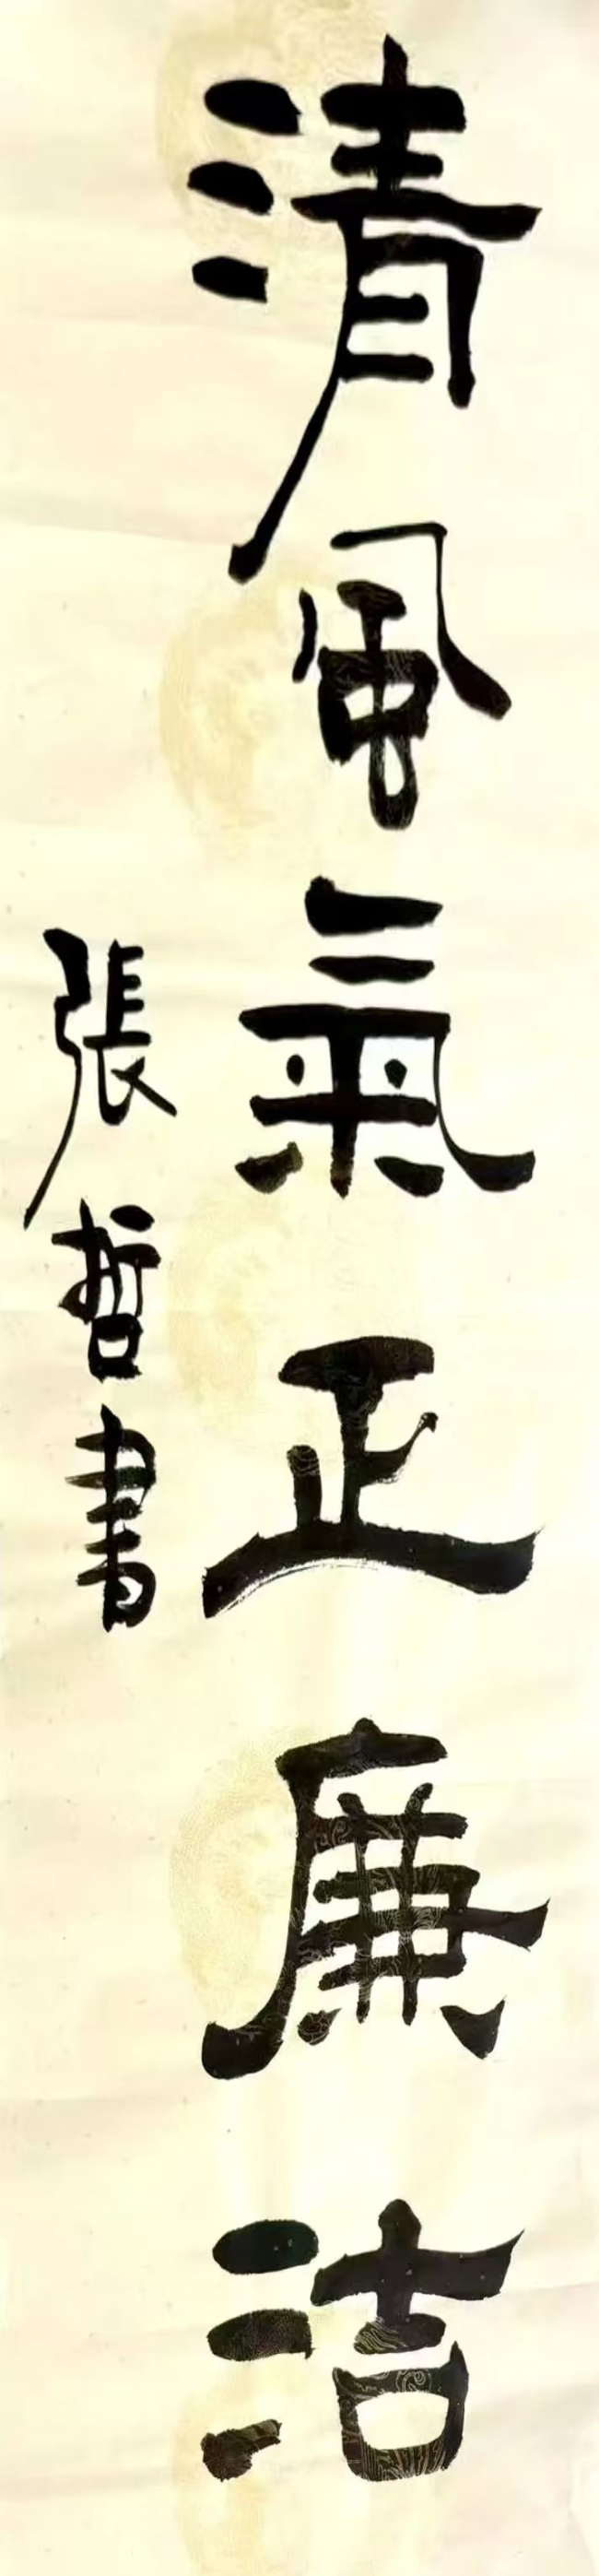 清風氣正廉洁
張哲書